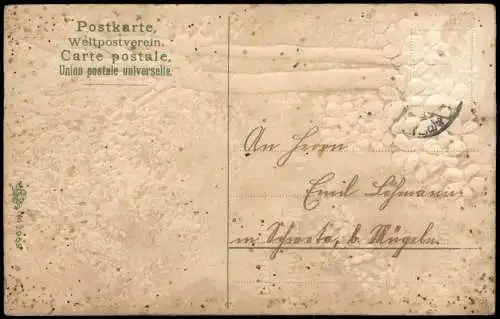 Postkarte.
Weltpostverein.
Carte postale.
Union postale universelle.
An Herrn
Emil Lehmann
in Schweta b. Mügeln.